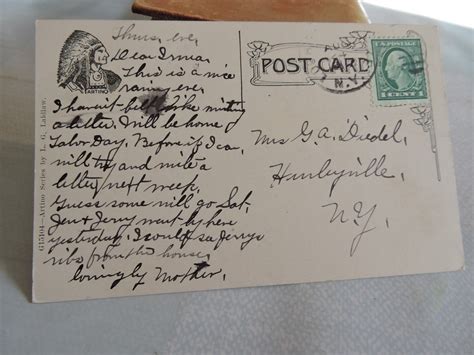 Thurs. eve
Dear Irma
This is a nice
rainy eve.
I haven't felt like writing
a letter. Will be home
Labor Day. Before if I can
will try and write a
letter next week.
Guess some will go Sat.
Jen & Jerry went by here
yesterday. I could see Jerry's
ribs from the house.
Lovingly Mother.
ARTINO
G15104—Artino Series by L. G. Laidlaw.
POST CARD
N.Y.
U.S. POSTAGE
1 CENT 1
Mrs G. A. Diedel,
N.Y.